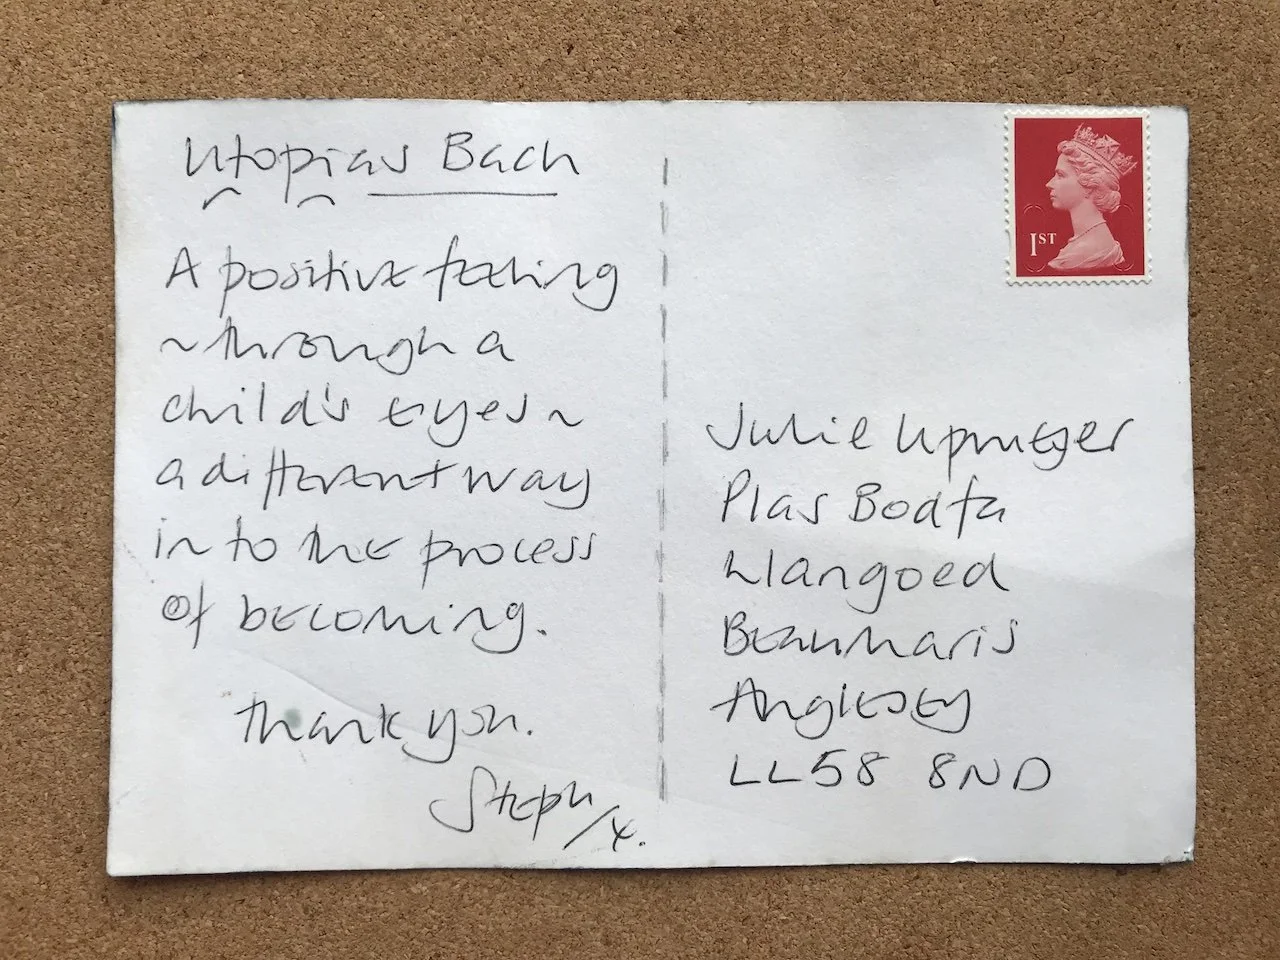 Utopias Bach
A positive feeling
~ through a
child's eyes ~
a different way
in to the process
of becoming.
Thank you.
Steph
/x.
1ST
Julie Upmeyer
Plas Bodfa
Llangoed
Beaumaris
Anglesey
LL58 8ND